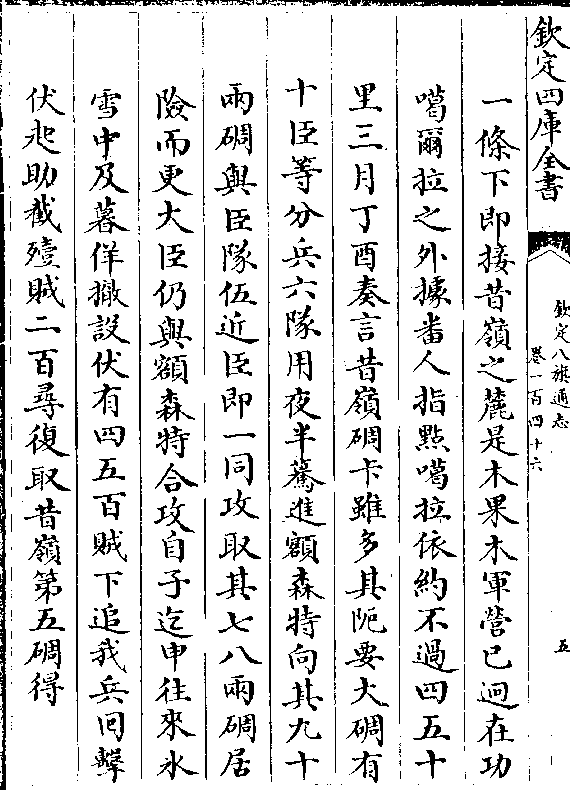 欽定四庫全書
欽定八旗通志
卷一百四十六
五
一條下即接昔嶺之麓是木果木軍營已迥在功
噶爾拉之外據畨人指點噶拉依約不過四五十
里三月丁酉奏言昔嶺碉卡雖多其阨要大碉有
十臣等分兵六隊用夜半驀進額森特向其九十
兩碉與臣隊伍近臣即一同攻取其七八兩碉居
險而更大臣仍與額森特合攻自子迄申往來氷
雪中及暮佯撤設伏有四五百賊下追我兵囘擊
伏起助截殪賊二百尋復取昔嶺第五碉得